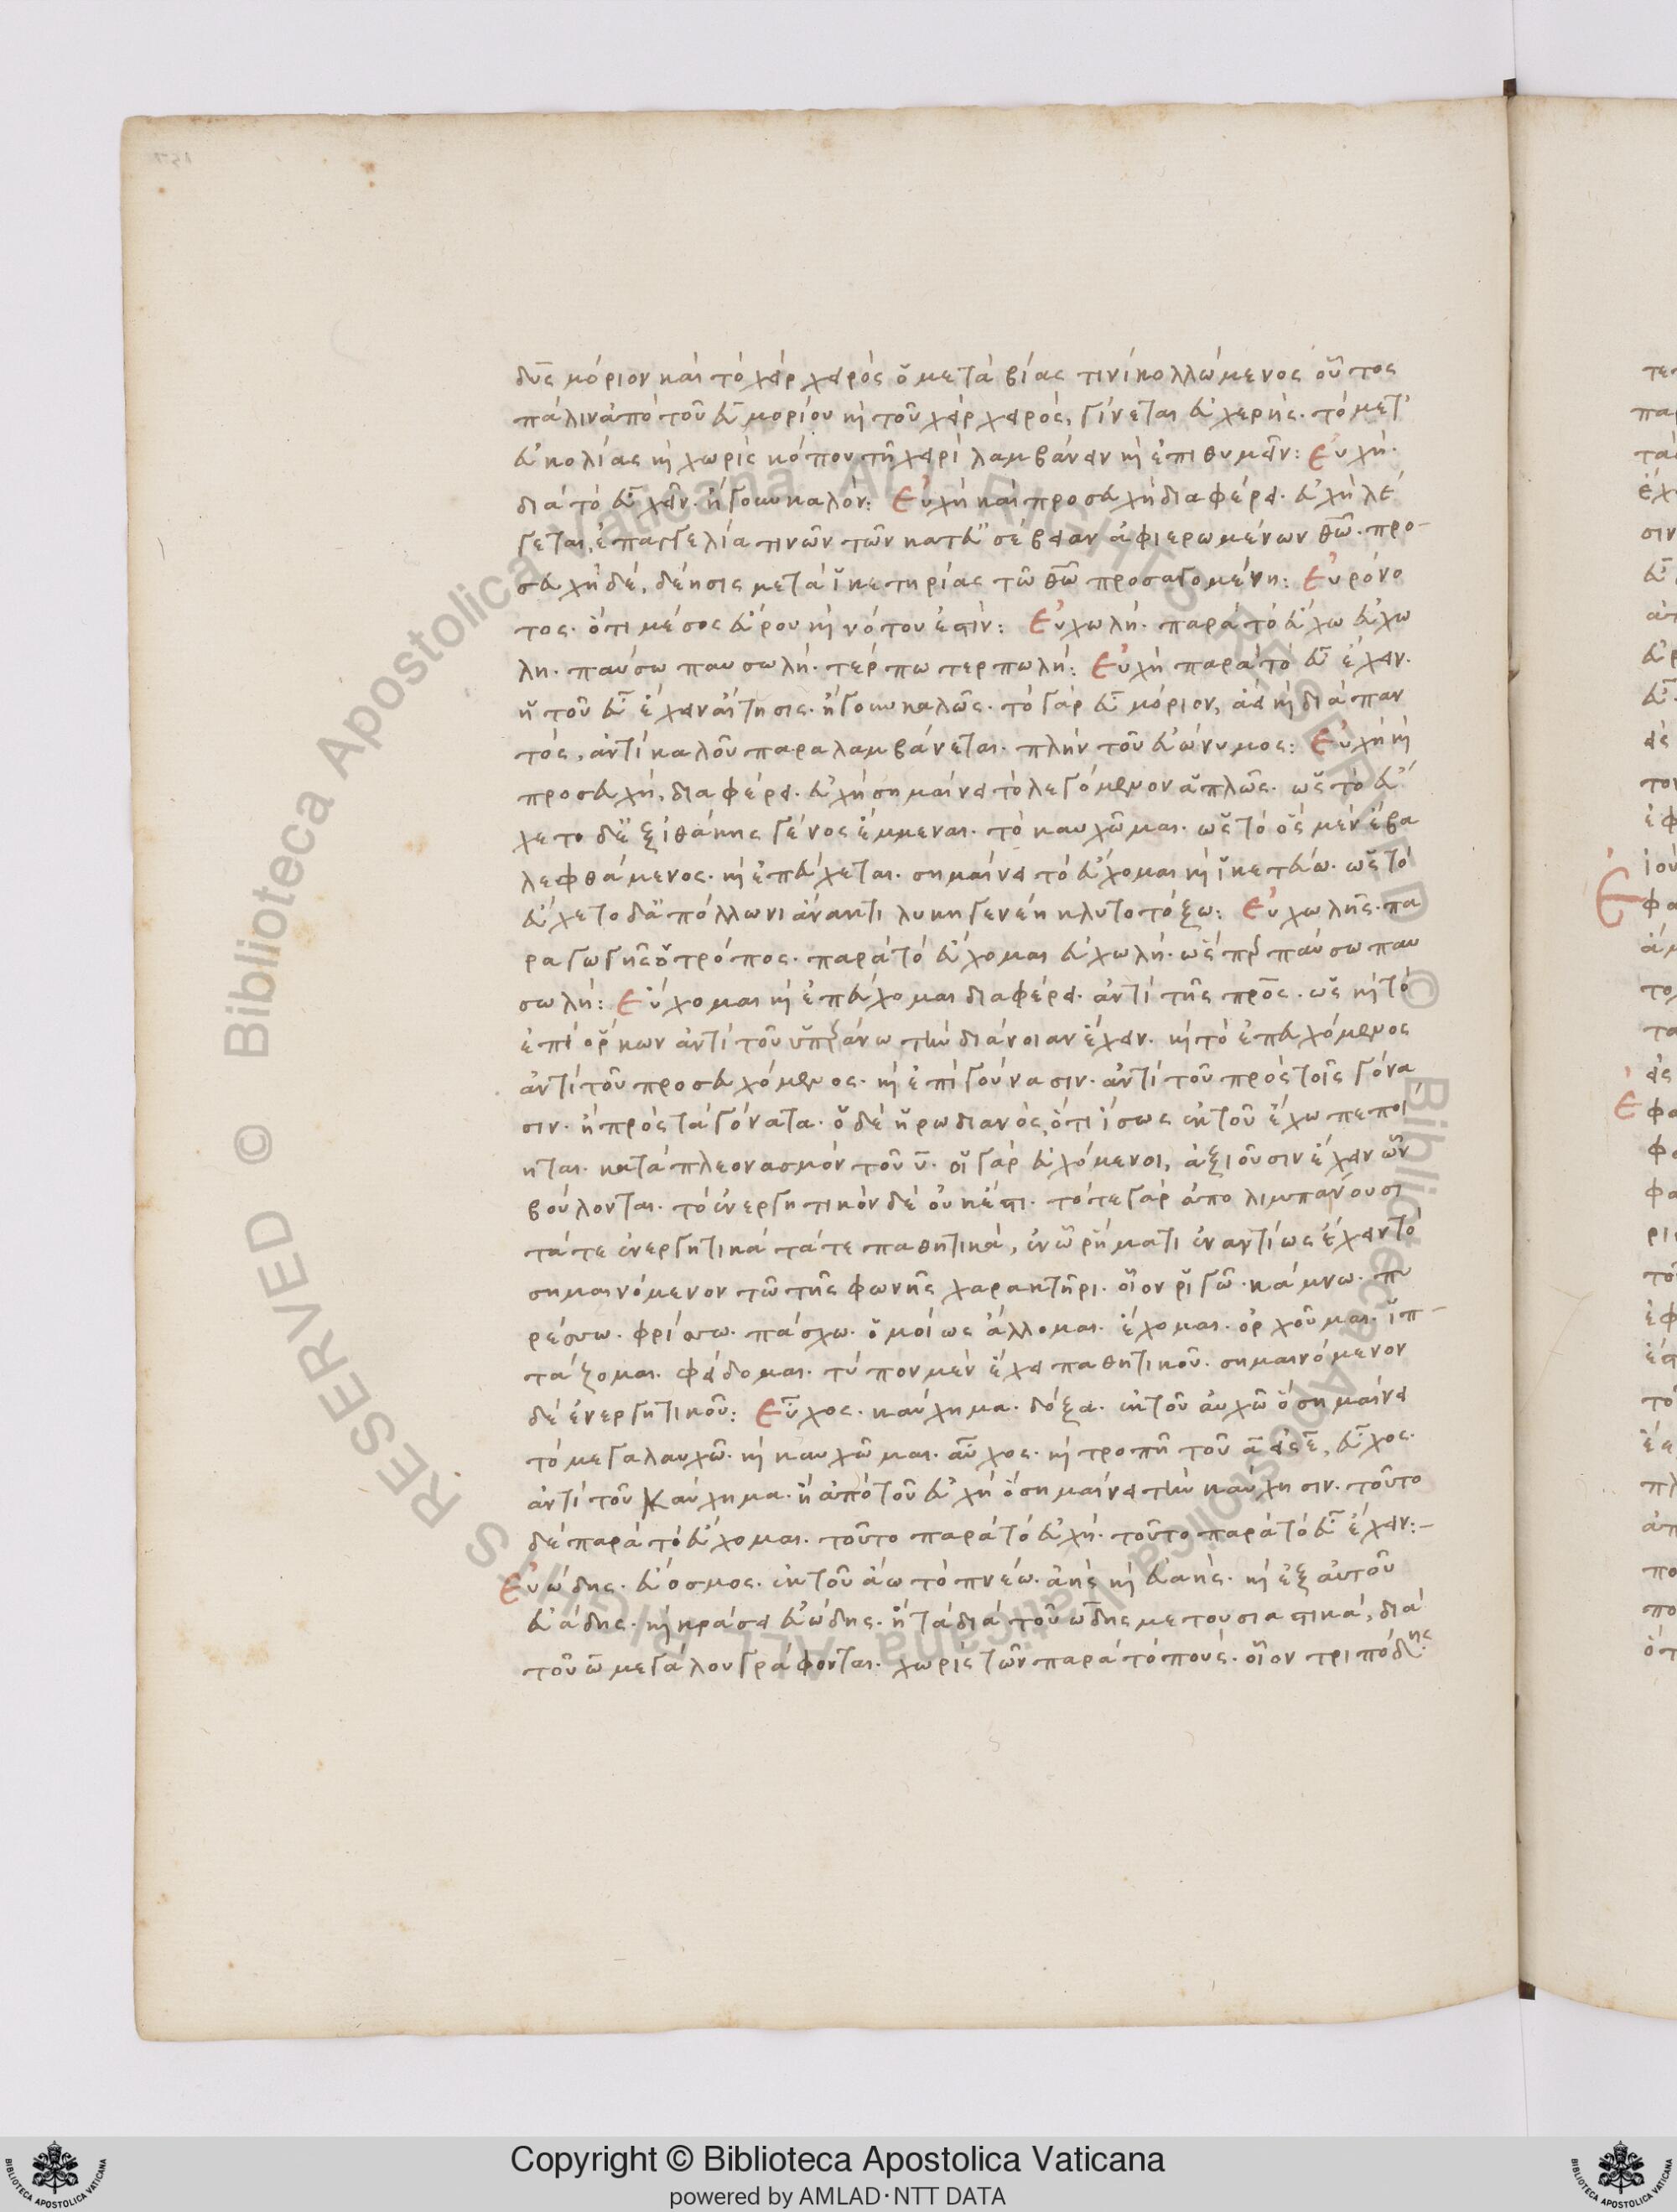 δυς μόριον καὶ τὸ χεὶρ χειρός ὁ μετὰ βίας τινὶ κολλώμενος οὗτος
πάλιν ἀπὸ τοῦ εὖ μορίου καὶ τοῦ χεὶρ χειρός, γίνεται εὐχερής. τὸ μετ'
εὐκολίας καὶ χωρὶς κόπου τῇ χειρὶ λαμβάνειν καὶ ἐπιθυμεῖν: Εὐχή.
διὰ τὸ εὖ χεῖν. ἤγουν καλόν: Εὐχὴ καὶ προσευχὴ διαφέρει. εὐχὴ λέ
γεται, ἐπαγγελία τινῶν τῶν κατ' εὐσέβειαν ἀφιερωμένων θῶ. προ-
σευχὴ δέ, δέησις μετὰ ἱκετηρίας τῶ θῶ προσαγομένη: Εὐρόνο
τος. ὅτι μέσος εὔρου καὶ νότου ἐστίν: Εὐχωλή. παρὰ τὸ εὔχω εὐχω
λη. παύσω παυσωλή. τέρπω τερπωλή: Εὐχὴ παρὰ τὸ εὖ ἔχειν.
ἡ τοῦ εὖ ἔχειν αἴτησις. ἤγουν καλῶς. τὸ γὰρ εὖ μόριον, ἀεὶ καὶ διὰ παν
τός, ἀντὶ καλοῦ παραλαμβάνεται. πλὴν τοῦ εὐώνυμος: Εὐχὴ καὶ
προσευχή, διαφέρει. εὐχὴ σημαίνει τὸ λεγόμενον ἁπλῶς. ὡς τὸ εὔ
χετο δ' ἐξ ἰθάκης γένος ἔμμεναι. τὸ καυχῶμαι. ὡς τὸ ὃς μὲν ἔβα
λε φθάμενος. καὶ ἐπεύχεται. σημαίνει τὸ εὔχομαι καὶ ἱκετεύω. ὡς τὸ
εὔχετο δ' ἀπόλλωνι ἄνακτι λυκηγενέη κλυτοτόξω: Εὐχωλῆς. πα
ραγωγῆς ὁ τρόπος. παρὰ τὸ εὔχομαι εὐχωλή. ὥσπερ παύσω παυ
σωλή: Εὔχομαι καὶ ἐπεύχομαι διαφέρει. ἀντὶ τῆς πρὸς. ὡς καὶ τὸ
ἐπὶ ὅρκων ἀντὶ τοῦ ὑπεράνω τὴν διάνοιαν ἔχειν. καὶ τὸ ἐπευχόμενος
ἀντὶ τοῦ προσευχόμενος. καὶ ἐπὶ γούνασιν. ἀντὶ τοῦ πρὸς τοῖς γόνα
σιν. ἢ πρὸς τὰ γόνατα. ὁ δὲ ἡρωδιανός, ὅτι ἴσως ἐκ τοῦ ἔχω πεποί
ηται. κατὰ πλεονασμὸν τοῦ υ. οἱ γὰρ εὐχόμενοι, ἀξιοῦσιν ἔχειν ὧν
βούλονται. τὸ ἐνεργητικὸν δὲ οὐκέτι. τότε γὰρ ἀπολιμπάνουσι
τά τε ἐνεργητικά τά τε παθητικά, ἐν ᾧ ῥήματι ἐναντίως ἔχει τὸ
σημαινόμενον τῶ τῆς φωνῆς χαρακτῆρι. οἷον ῥιγῶ. κάμνω. πυ
ρέσσω. φρίσσω. πάσχω. ὁμοίως ἅλλομαι. ἔχομαι. ὀρχοῦμαι. ἱπ-
τάζομαι. φείδομαι. τύπον μὲν ἔχει παθητικοῦ. σημαινόμενον
δὲ ἐνεργητικοῦ: Εὖχος. καύχημα. δόξα. ἐκ τοῦ αὐχῶ ὃ σημαίνει
τὸ μεγαλαυχῶ. καὶ καυχῶμαι. αὖχος. καὶ τροπῆ τοῦ α εἰς ε, εὖχος.
ἀντὶ τοῦ καύχημα. ἢ ἀπὸ τοῦ εὐχὴ ὃ σημαίνει τὴν καύχησιν. τοῦτο
δὲ παρὰ τὸ εὔχομαι. τοῦτο παρὰ τὸ εὐχή. τοῦτο παρὰ τὸ εὖ ἔχειν:-
Εὐώδης. εὔοσμος. ἐκ τοῦ ἄω τὸ πνέω. ἀὴς καὶ εὐαής. καὶ ἐξ αὐτοῦ
εὐάδης. καὶ κράσει εὐώδης. ἢ τὰ διὰ τοῦ ωδης μετουσιαστικά, διὰ
τοῦ ω μεγάλου γράφονται. χωρὶς τῶν παρὰ τὸ πούς. οἷον τριπόδης